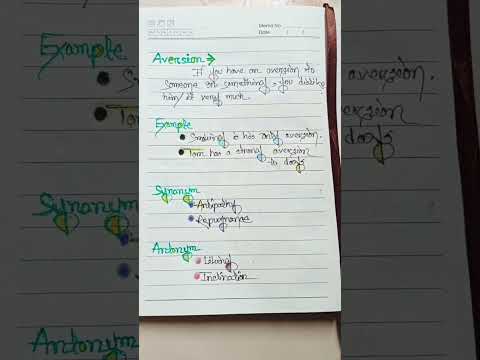 Memo No.
Date / /
Aversion →
If you have an aversion to
someone or something, you dislike
him/it very much.
Example
Smoking is his only aversion.
Tom has a strong aversion
to dogs
Synonym
Antipathy
Repugnance
Antonym
Liking
Inclination